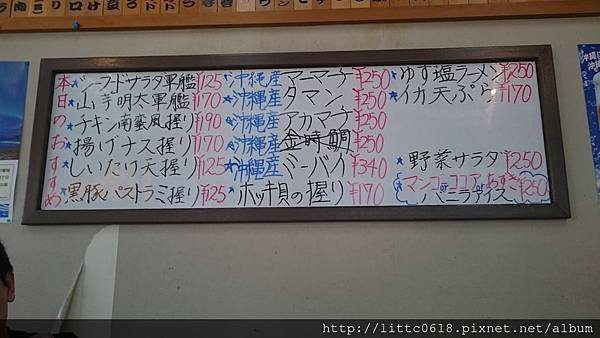 本日のおすすめ
シーフードサラダ軍艦 ¥125
山芋明太軍艦 ¥170
チキン南蛮風握り ¥190
揚げナス握り ¥170
しいたけ天握り ¥125
黒豚パストラミ握り ¥125
沖縄産 マーマチ ¥250
沖縄産 タマン ¥250
沖縄産 アカマチ ¥250
沖縄産 金時鯛 ¥250
沖縄産 ミーバイ ¥340
ホッキ貝の握り ¥170
ゆず塩ラーメン ¥250
イカ天ぷら ¥170
野菜サラダ ¥250
マンゴーorココアorあずき
バニラアイス ¥250
http://littc0618.pixnet.net/album